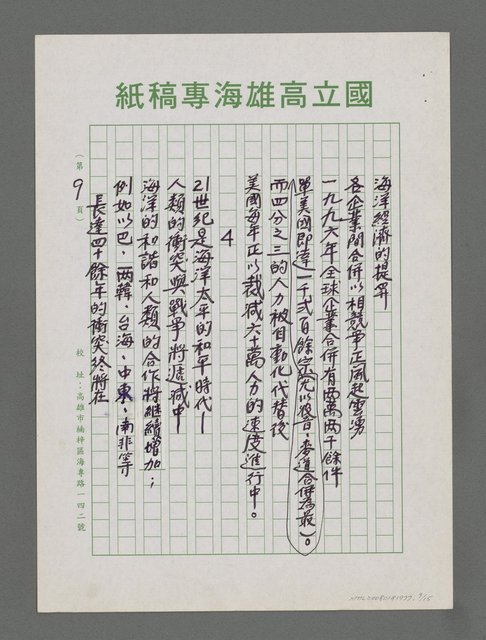 國立高雄海專稿紙
海洋經濟的提昇
各企業間合併以相競爭正風起雲湧
一九九六年全球企業合併有兩萬兩千餘件
單美國即達一千弍百餘宗(尤以波音、麥道合併為最)。
而四分之三的人力被自動化代替後
美國每年正以裁減六十萬人力的速度進行中。
4
21世紀是海洋太平的和平時代—
人類的衝突與戰爭將遞減中—
海洋的和諧和人類的合作將繼續增加；
例如以巴、兩韓、台海、中東、南非等
長達四十餘年的衝突終將在
(第9頁)
校址：高雄市楠梓區海專路一四二號
9/15